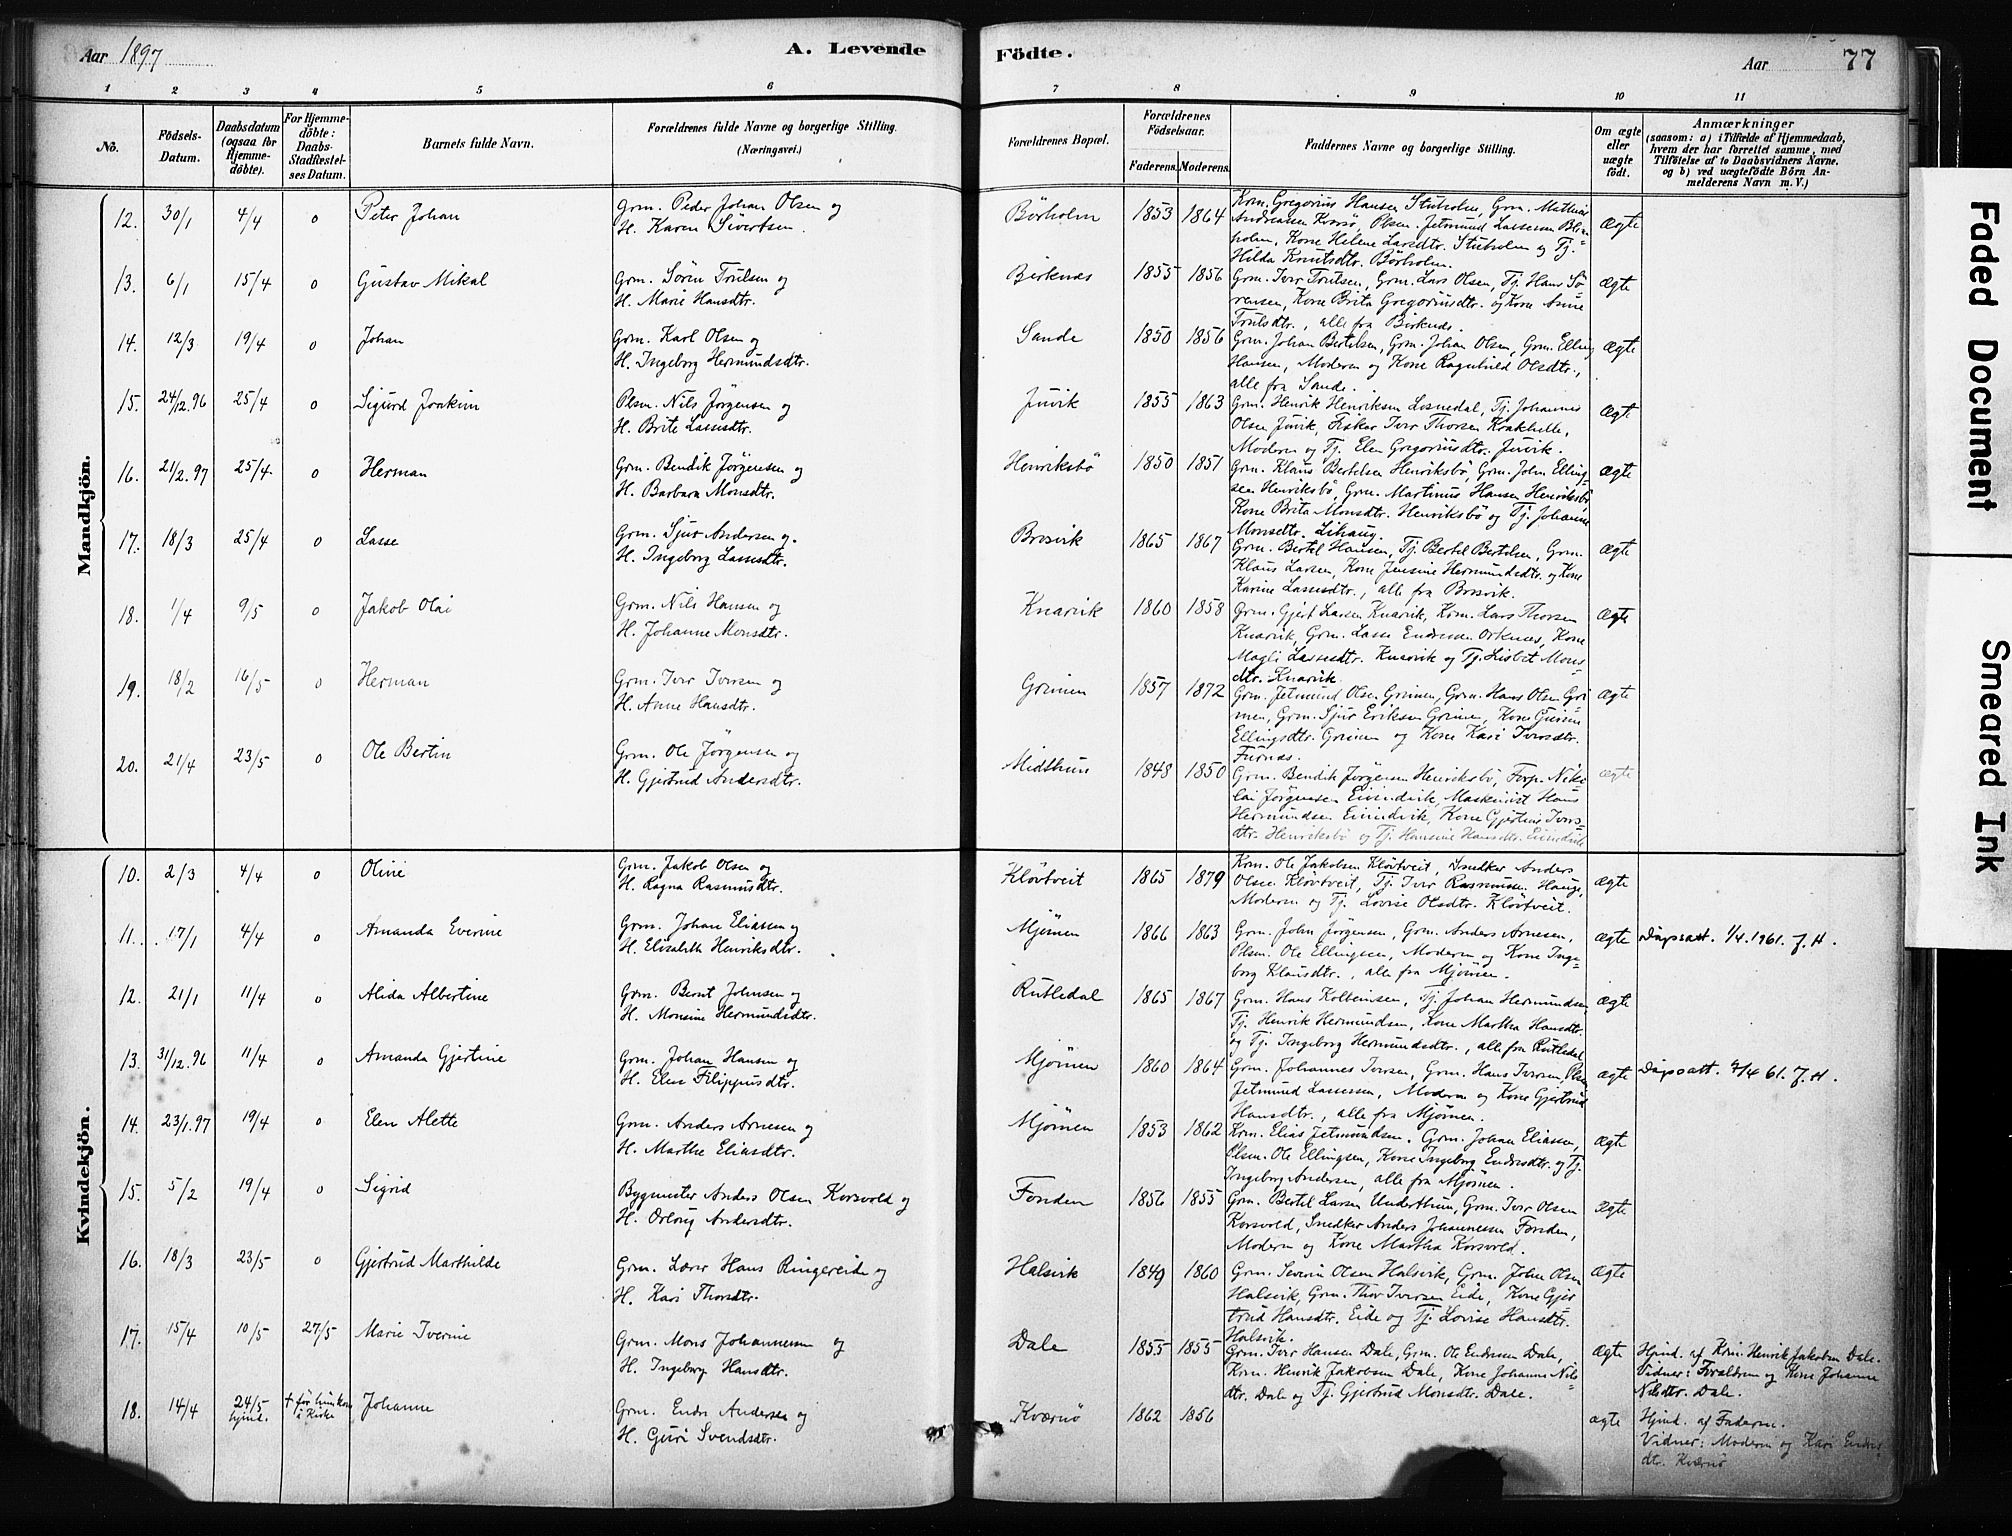 Aar 1897
A. Levende
Födte.
Aar
77
1 2 3 4 5 6
7 8 9 10 11
No.
Födsels-
Datum.
Daabsdatum
(ogsaa for
Hjemme-
döbte).
For Hjemme-
döbte:
Daabs-
Stadfæstel-
ses Datum.
Barnets fulde Navn.
Forældrenes fulde Navne og borgerlige Stilling.
(Næringsvei.)
Forældrenes Bopæl.
Forældrenes
Födselsaar.
Faderens. Moderens.
Faddernes Navne og borgerlige Stilling.
Om ægte
eller
uægte
födt.
Anmærkninger
(saasom: a) i Tilfælde af Hjemmedaab,
hvem der har forrettet samme, med
Tilföielse af to Daabsvidners Navne.
og b) ved uægtefödte Börn An-
melderens Navn m. V.)
Mandkjön.
12. 30/1 4/4 o Peter Johan
Grm. Peder Johan Olsen og
H. Karen Sivertsen.
Börholm 1853 1864
Krm. Gregorius Hansen Stuholm, Grm. Mathias
Andreasen Korsö, Plsm. Jetmund Lassesen Bli-
holm, Kone Helene Larsdtr. Stuholm og Tj.
Hilda Knutsdtr. Börholm.
Ægte
13. 6/1 15/4 o Gustav Mikal
Grm. Sörin Trulsen og
H. Marie Hansdtr.
Birknes 1855 1856
Grm. Iver Trulsen, Grm. Lars Olsen, Tj. Hans Sö-
rensen, Kone Brita Gregoriusdtr. og Kone Anne
Trulsdtr., alle fra Birknes.
Ægte
14. 12/3 19/4 o Johan
Grm. Karl Olsen og
H. Ingeborg Hermundsdtr.
Sande 1850 1856
Grm. Johan Bertelsen, Grm. Johan Olsen, Grm. Elling
Hansen, Modern og Kone Ragnhild Olsdtr.,
alle fra Sande.
Ægte
15. 24/12.96 25/4 o Sigurd Joakim
Plsm. Nils Jörgensen og
H. Brite Lassesdtr.
Juvik 1855 1863
Grm. Henrik Henriksen Losnedal, Tj. Johannes
Olsen Juvik, Fisker Iver Thorsen Krakhelle,
Modern og Tj. Elen Gregoriusdtr. Juvik.
Ægte
16. 21/2.97 25/4 o Herman
Grm. Bendik Jörgensen og
H. Barbara Monsdtr.
Henriksbö 1850 1851
Grm. Klaus Bertelsen Henriksbö, Grm. John Elling-
sen Henriksbö, Grm. Martinus Hansen Henriksbö,
Kone Brita Monsdtr. Henriksbö og Tj. Johanne
Monsdtr. Lihaug.
Ægte
17. 18/3 25/4 o Lasse
Grm. Sjur Andersen og
H. Ingeborg Lassesdtr.
Brosvik 1865 1867
Grm. Bertel Hansen, Tj. Bertel Bertelsen, Grm.
Klaus Larsen, Kone Jensine Hermundsdtr. og Kone
Karine Lassesdtr., alle fra Brosvik.
Ægte
18. 1/4 9/5 o Jakob Olai
Grm. Nils Hansen og
H. Johanne Monsdtr.
Knarvik 1860 1858
Grm. Gjert Larsen Knarvik, Krm. Lars Thorsen
Knarvik, Grm. Lasse Endresen Orknes, Kone
Magli Lassesdtr. Knarvik og Tj. Lisbet Mons-
dtr. Knarvik
Ægte
19. 18/2 16/5 o Herman
Grm. Iver Iversen og
H. Anne Hansdtr.
Grinen 1857 1872
Grm. Jetmund Olsen Grinen, Grm. Hans Olsen Gri-
nen, Grm. Sjur Eriksen Grinen, Kone
Ellingsdtr. Grinen og Kone Kari Iversdtr.
Furnes.
Ægte
20. 21/4 23/5 o Ole Bertin
Grm. Ole Jörgensen og
H. Gjertrud Andersdtr.
Midthun 1848 1850
Grm. Bendik Jörgensen Henriksbö, Forp. Niko-
lai Jörgensen Eivindvik, Maskinist Hans
Hermundsen Eivindvik, Kone Gjertine Ivers-
dtr. Henriksbö og Tj. Hansine Hansdtr. Eivindvik
Ægte
Kvindekjön.
10. 2/3 4/4 o Oline
Grm. Jakob Olsen og
H. Ragna Rasmusdtr.
Klövtveit 1865 1879
Krm. Ole Jakobsen Klövtveit, Snedker Anders
Olsen Klövtveit, Tj. Iver Rasmussen Hauge,
Modern og Tj. Lovise Olsdtr. Klövtveit.
Ægte
11. 17/1 4/4 o Amanda Everine
Grm. Johan Eliassen og
H. Elisabeth Henriksdtr.
Mjömen 1866 1863
Grm. John Jörgensen, Grm. Anders Arnesen,
Plsm. Ole Ellingsen, Modern og Kone Inge-
borg Klausdtr., alle fra Mjömen.
Ægte
Dåpsatt. 1/4.1961. J.H.
12. 21/1 11/4 o Alida Albertine
Grm. Bernt Johnsen og
H. Monsine Hermundsdtr.
Rutledal 1865 1867
Grm. Hans Kolbeinsen, Tj. Johan Hermundsen,
Tj. Henrik Hermundsen, Kone Martha Hansdtr.
og Tj. Ingeborg Hermundsdtr., alle fra Rutledal
Ægte
13. 31/12.96 11/4 o Amanda Gjertine
Grm. Johan Hansen og
H. Elen Filippusdtr.
Mjömen 1860 1864
Grm. Johannes Iversen, Grm. Hans Iversen, Plsm.
Jetmund Lassesen, Modern og Kone Gjertrud
Hansdtr., alle fra Mjömen.
Ægte
Dåpsatt. 61. J.H.
14. 23/1.97 19/4 o Elen Alette
Grm. Anders Arnesen og
H. Marthe Eliasdtr.
Mjömen 1853 1862
Krm. Elias Jetmundsen, Grm. Johan Eliassen,
Plsm. Ole Ellingsen, Kone Ingeborg Endresdtr. og Tj.
Ingeborg Andersen, alle fra Mjömen.
Ægte
15. 5/2 19/4 o Sigrid
Bygmester Anders Olsen Korsvold og
H. Orloug Andersdtr.
Fonden 1856 1855
Grm. Bertel Larsen Underthun, Grm. Iver Olsen
Korsvold, Snedker Anders Johannessen Fonden,
Modern og Kone Martha Korsvold.
Ægte
16. 18/3 23/5 o Gjertrud Marthilde
Grm. Lærer Hans Ringereide og
H. Kari Thorsdtr.
Halsvik 1849 1860
Grm. Severin Olsen Halsvik, Grm. John Olsen
Halsvik, Grm. Thor Iversen Eide, Kone Gjer-
trud Hansdtr. Eide og Tj. Lovise Hansdtr.
Halsvik.
Ægte
17. 15/4 10/5 27/5 Marie Iverine
Grm. Mons Johannesen og
H. Ingeborg Hansdtr.
Dale 1855 1855
Grm. Iver Hansen Dale, Grm. Ole Endresen Dale,
Krm. Henrik Jakobsen Dale, Kone Johanne Nils-
dtr. Dale og Tj. Gjertrud Monsdtr. Dale.
Ægte
Hjmd. af Krm. Henrik Jakobsen Dale.
Vidner: Forældrene og Kone Johanne
Nilsdtr. Dale.
18. 14/4 24/5 hjmd. † før hun kom i Kirke Johanne
Grm. Endre Andersen og
H. Guri Svendsdtr.
Kværnö 1862 1856
ægte
Hjmd. af Faderen.
Vidner: Modern og Kari Endres-
dtr. Kværnö
Faded Document
Smeared Ink